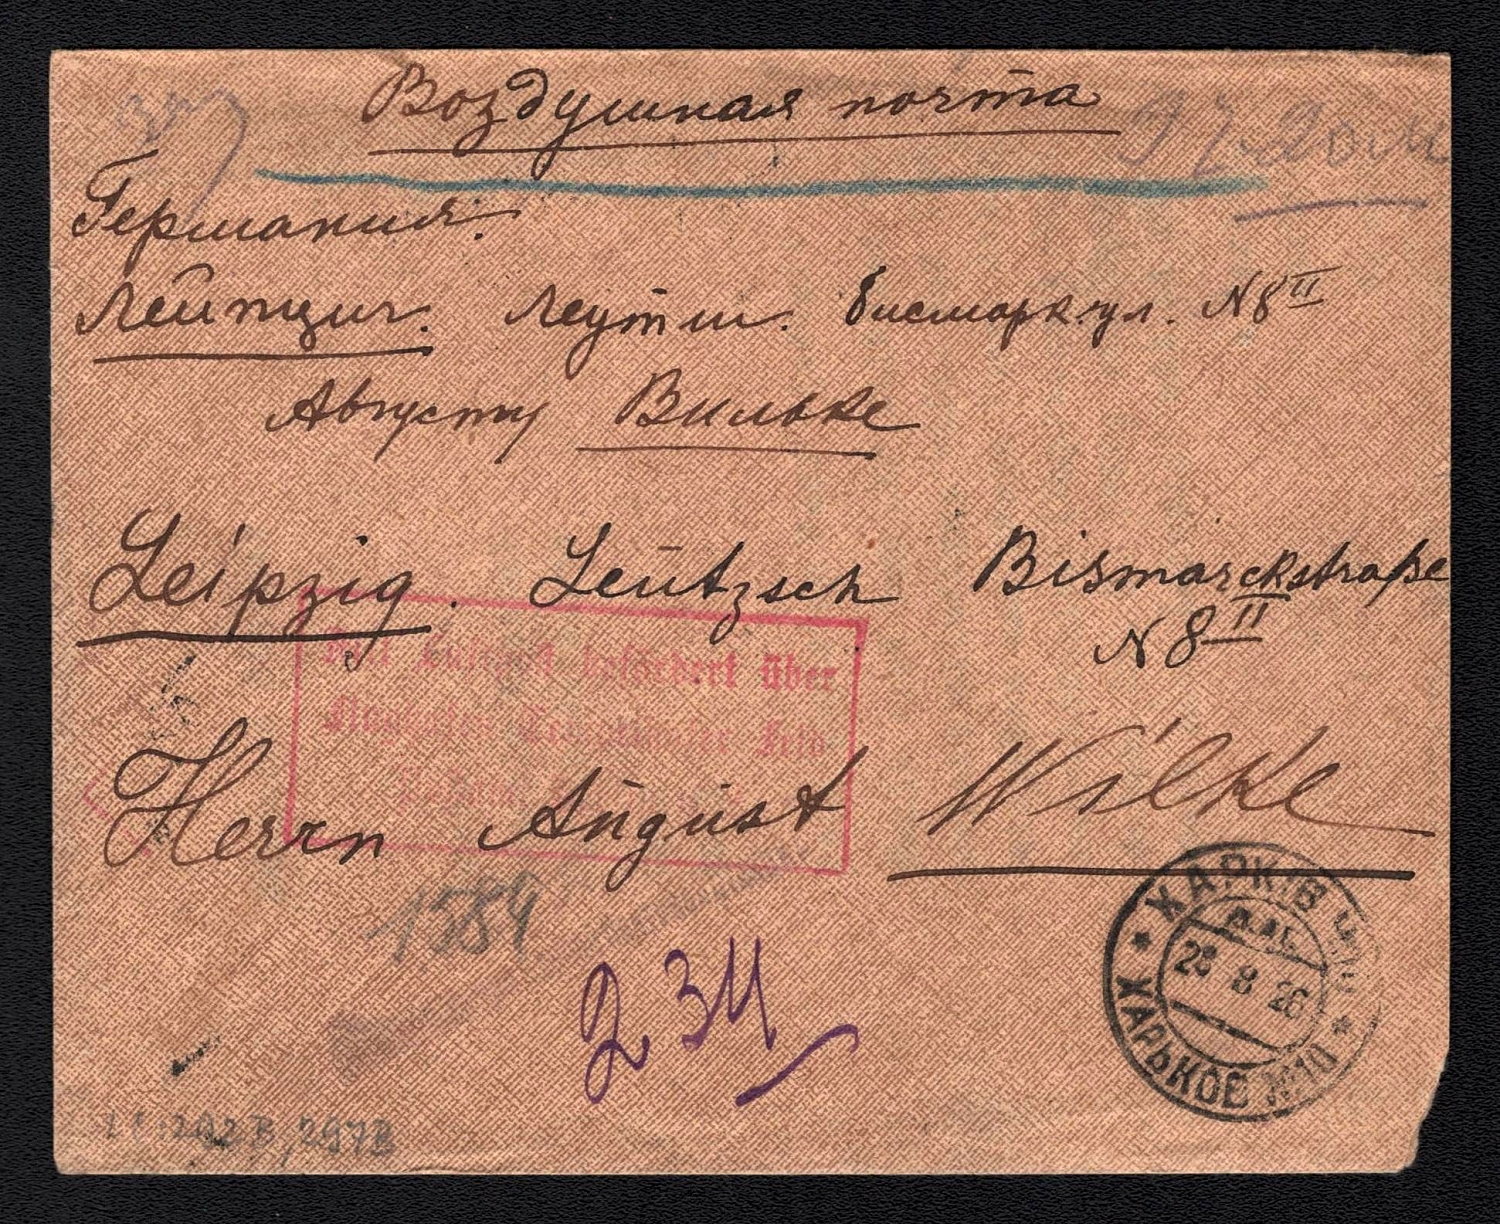 Воздушная почта
Германия.
Лейпциг. Леутш. Бисмарк.ул. N8 II
Августу Вильке
Leipzig. Leutzsch Bismarckstraße
N 8 II
Mit Luftpost befördert über
Flughafen Tempelhofer Feld
Herrn August Wilke
1584
ХАРКІВ
28 8 26
ХАРЬКОВ №10
297B